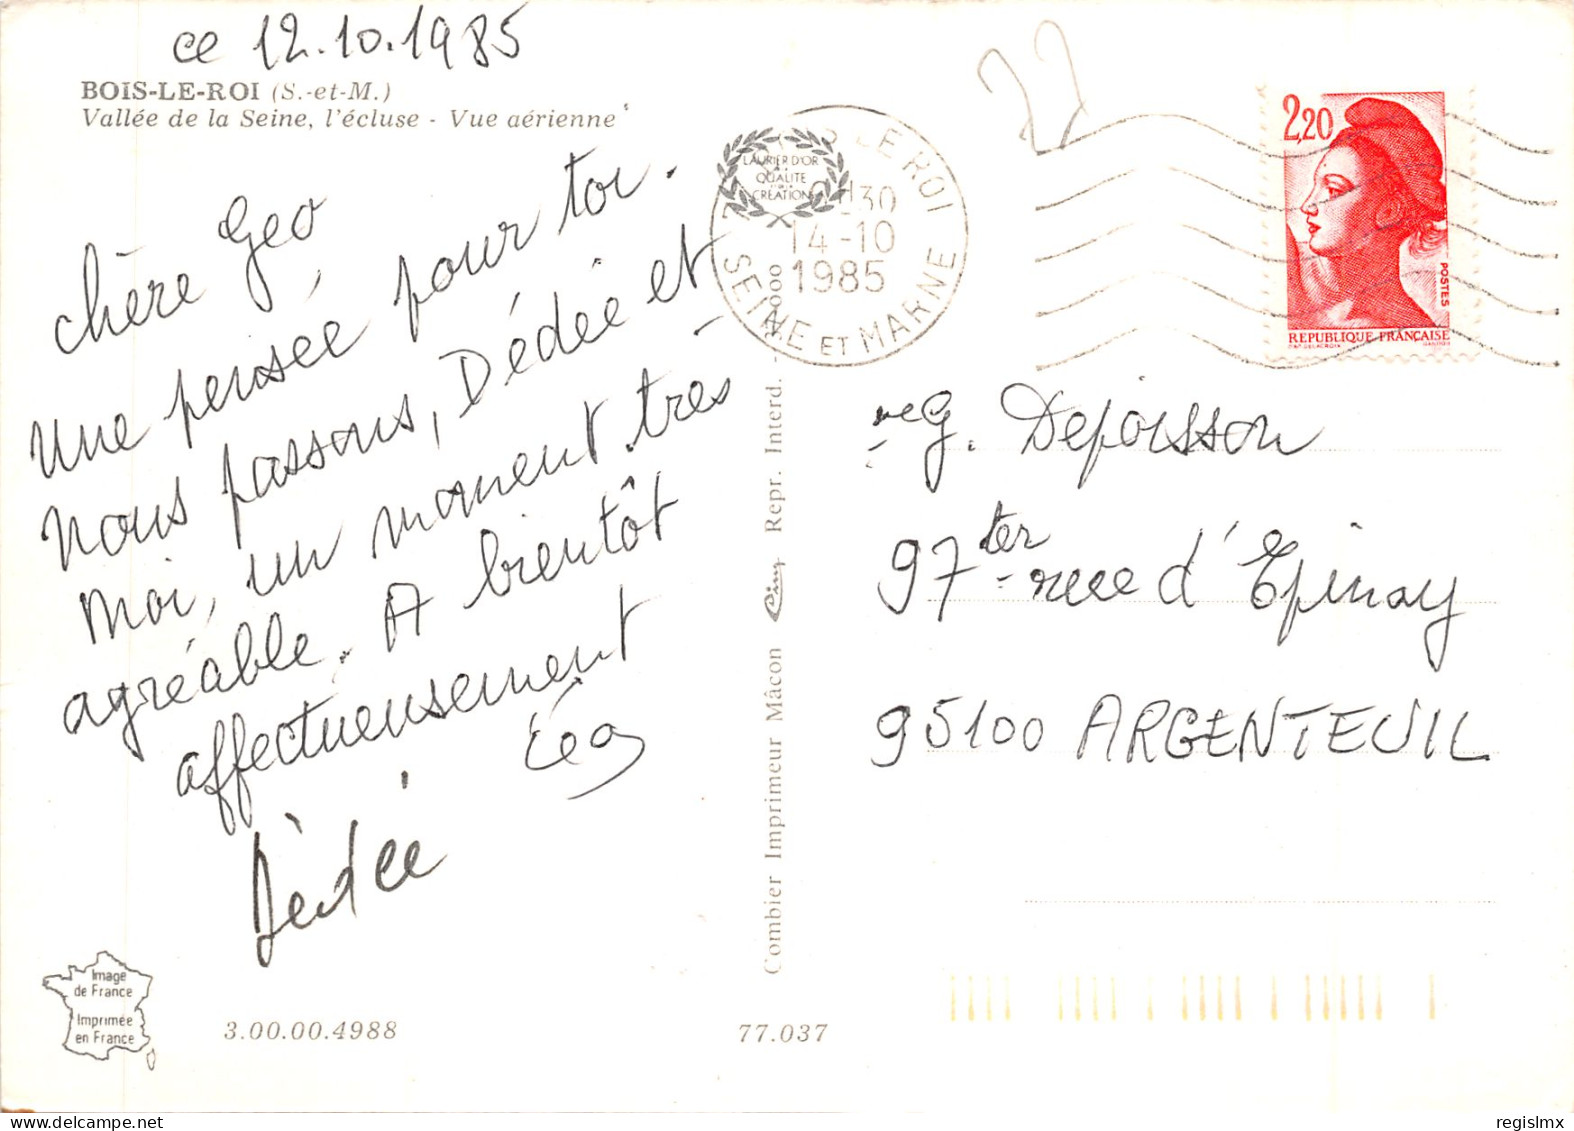 ce 12.10.1985
BOIS-LE-ROI (S.-et-M.)
Vallée de la Seine, l'écluse - Vue aérienne
chère Geo
Une pensée pour toi.
nous passons, Dédée et
moi, un moment tres
agréable. A bientôt
affectueusement
Léa
Dédée
Image
de France
Imprimée
en France
3.00.00.4988
77.037
Combier Imprimeur Mâcon Cim Repr. Interd.
LAURIER D'OR
QUALITE
CREATION
LE ROI
30
14-10
1985
SEINE ET MARNE
22
2,20
POSTES
REPUBLIQUE FRANÇAISE
G. Depoisson
97 ter rue d'Epinay
95100 ARGENTEUIL
regislmx